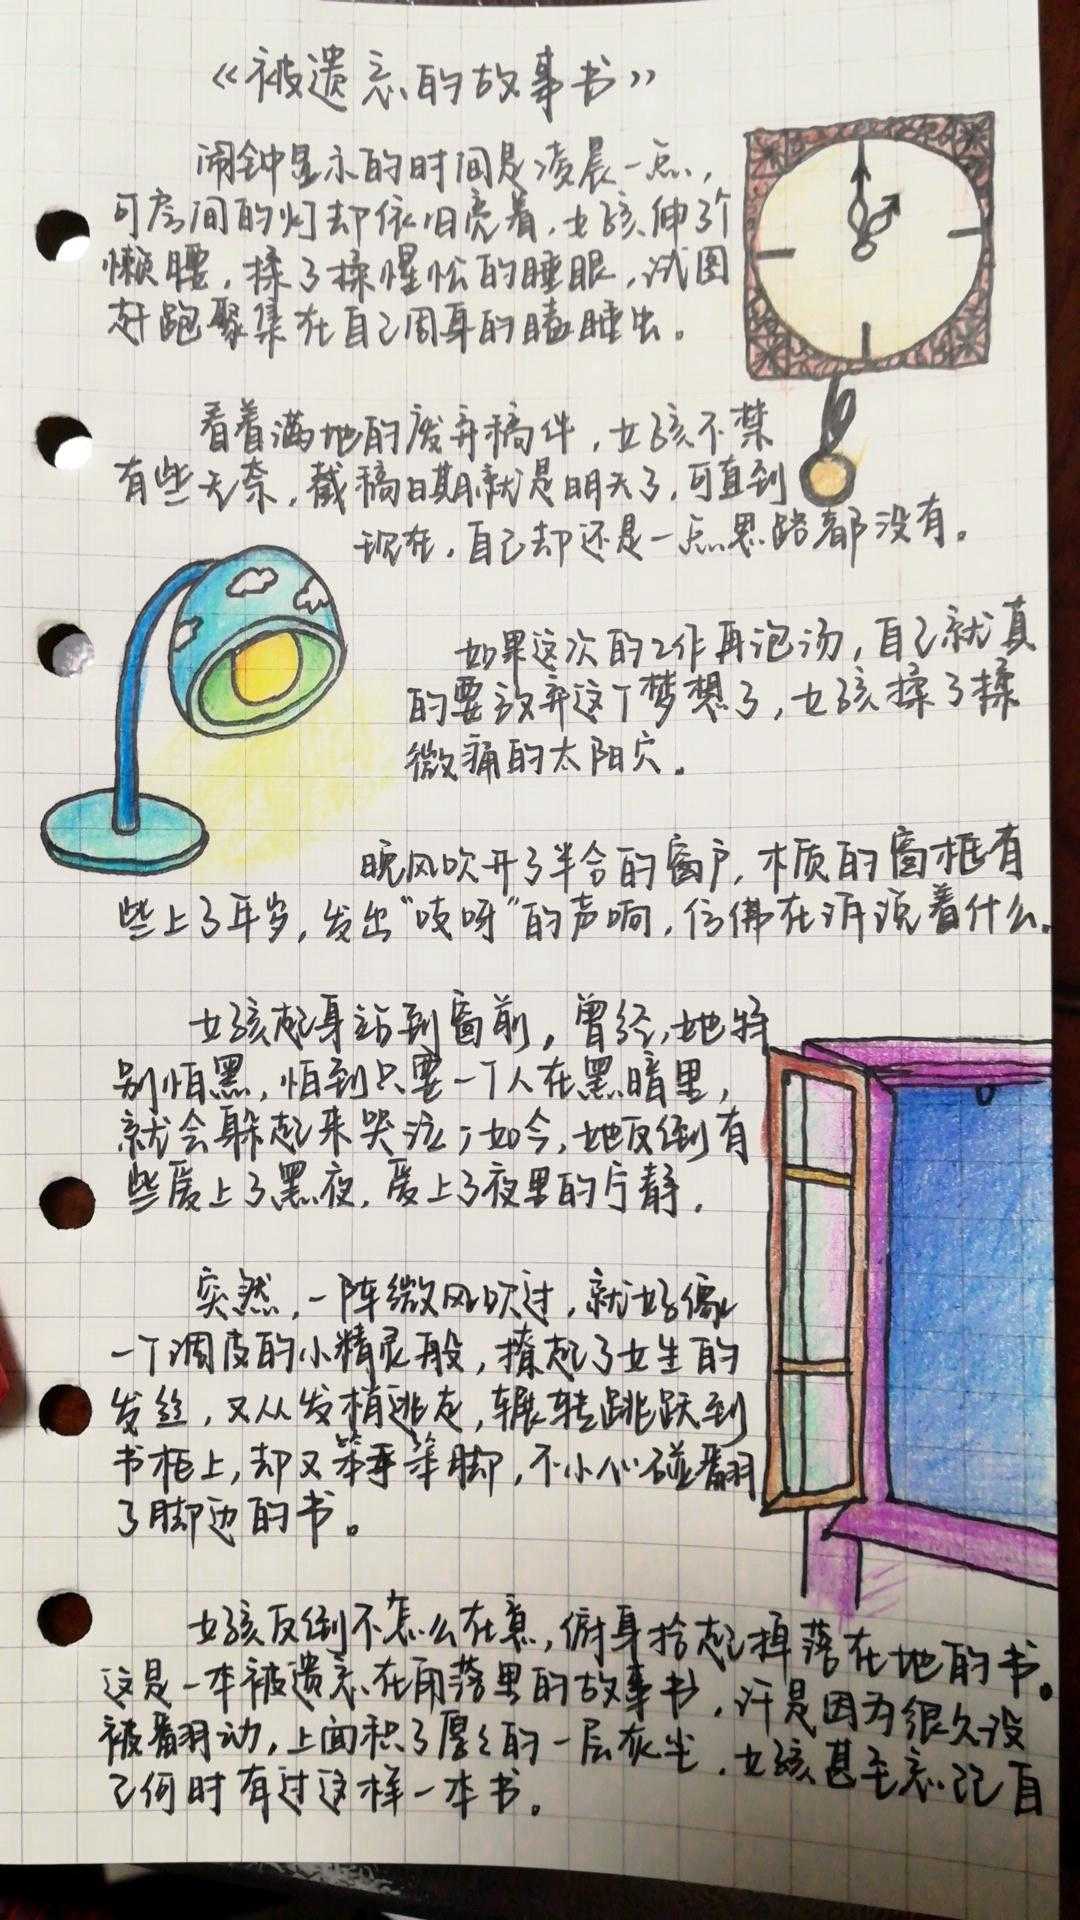 《被遗忘的故事书》
闹钟显示的时间是凌晨一点，
可房间的灯却依旧亮着，女孩伸了个
懒腰，揉了揉惺忪的睡眼，试图
赶跑聚集在自己周身的瞌睡虫。
看着满地的废弃稿件，女孩不禁
有些无奈，截稿日期就是明天了，可直到
现在，自己却还是一点思路都没有。
如果这次的工作再泡汤，自己就真
的要放弃这个梦想了，女孩揉了揉
微痛的太阳穴。
晚风吹开了半合的窗户，木质的窗框有
些上了年岁，发出“吱呀”的声响，仿佛在诉说着什么。
女孩起身站到窗前，曾经，她特
别怕黑，怕到只要一个人在黑暗里，
就会躲起来哭泣；如今，她反倒有
些爱上了黑夜，爱上了夜里的宁静。
突然，一阵微风吹过，就好像
一个调皮的小精灵般，撩起了女生的
发丝，又从发梢逃走，辗转跳跃到
书柜上，却又笨手笨脚，不小心碰翻
了脚边的书。
女孩反倒不怎么在意，俯身拾起掉落在地的书。
这是一本被遗忘在角落里的故事书，许是因为很久没
被翻动，上面积了厚々的一层灰尘，女孩甚至忘记自
己何时有过这样一本书。